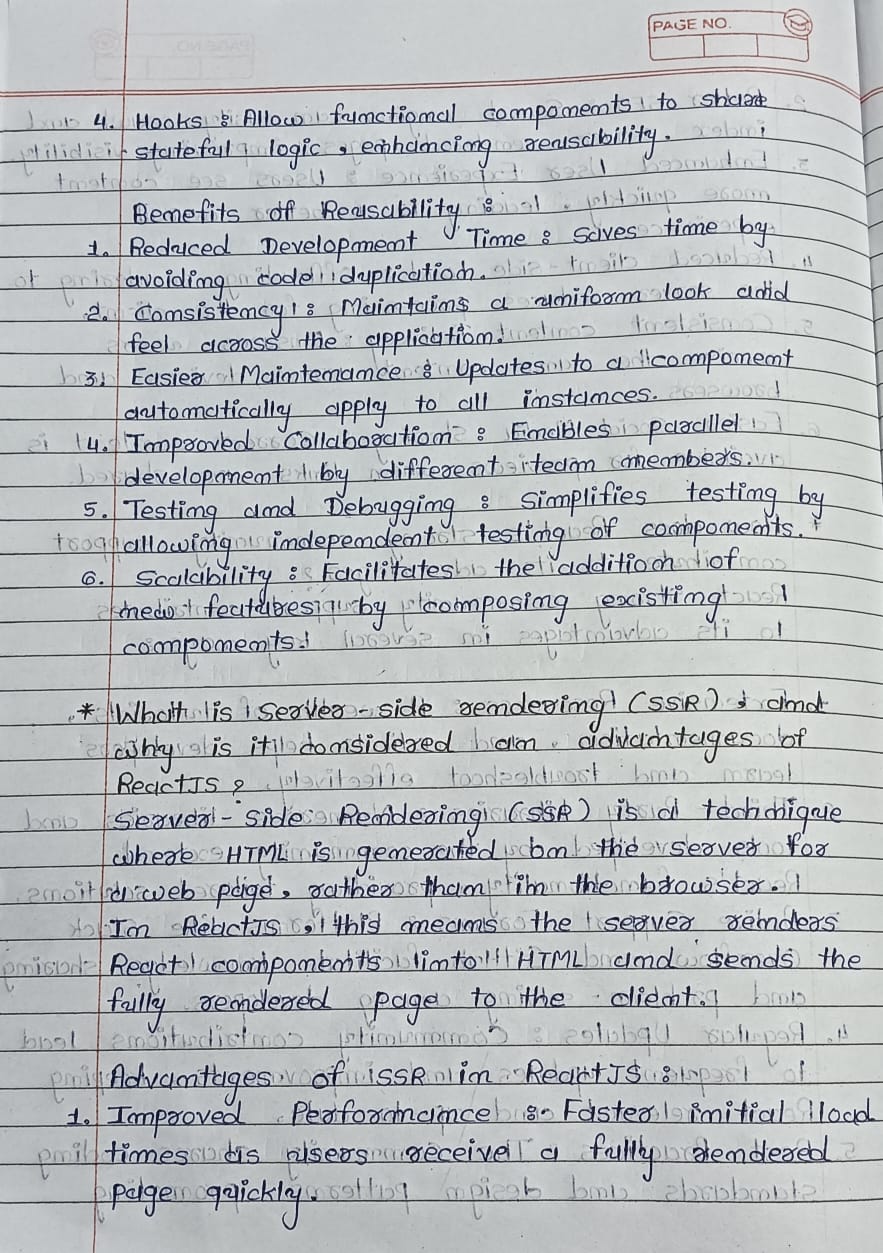 PAGE NO.
4. Hooks : Allow functional components to share
stateful logic, enhancing reusability.
Benefits of Reusability :
1. Reduced Development Time : Saves time by
avoiding code duplication.
2. Consistency : Maintains a uniform look and
feel across the application.
3. Easier Maintenance : Updates to a component
automatically apply to all instances.
4. Improved Collaboration : Enables parallel
development by different team members.
5. Testing and Debugging : Simplifies testing by
allowing independent testing of components.
6. Scalability : Facilitates the addition of
new features by composing existing
components.
* What is server-side rendering (SSR) & and
why is it considered an advantages of
ReactJS ?
Server-side Rendering (SSR) is a technique
where HTML is generated on the server for
a web page, rather than in the browser.
In ReactJS, this means the server renders
React components into HTML and sends the
fully rendered page to the client.
Advantages of SSR in ReactJS :
1. Improved Performance : Faster initial load
times as users receive a fully rendered
page quickly.